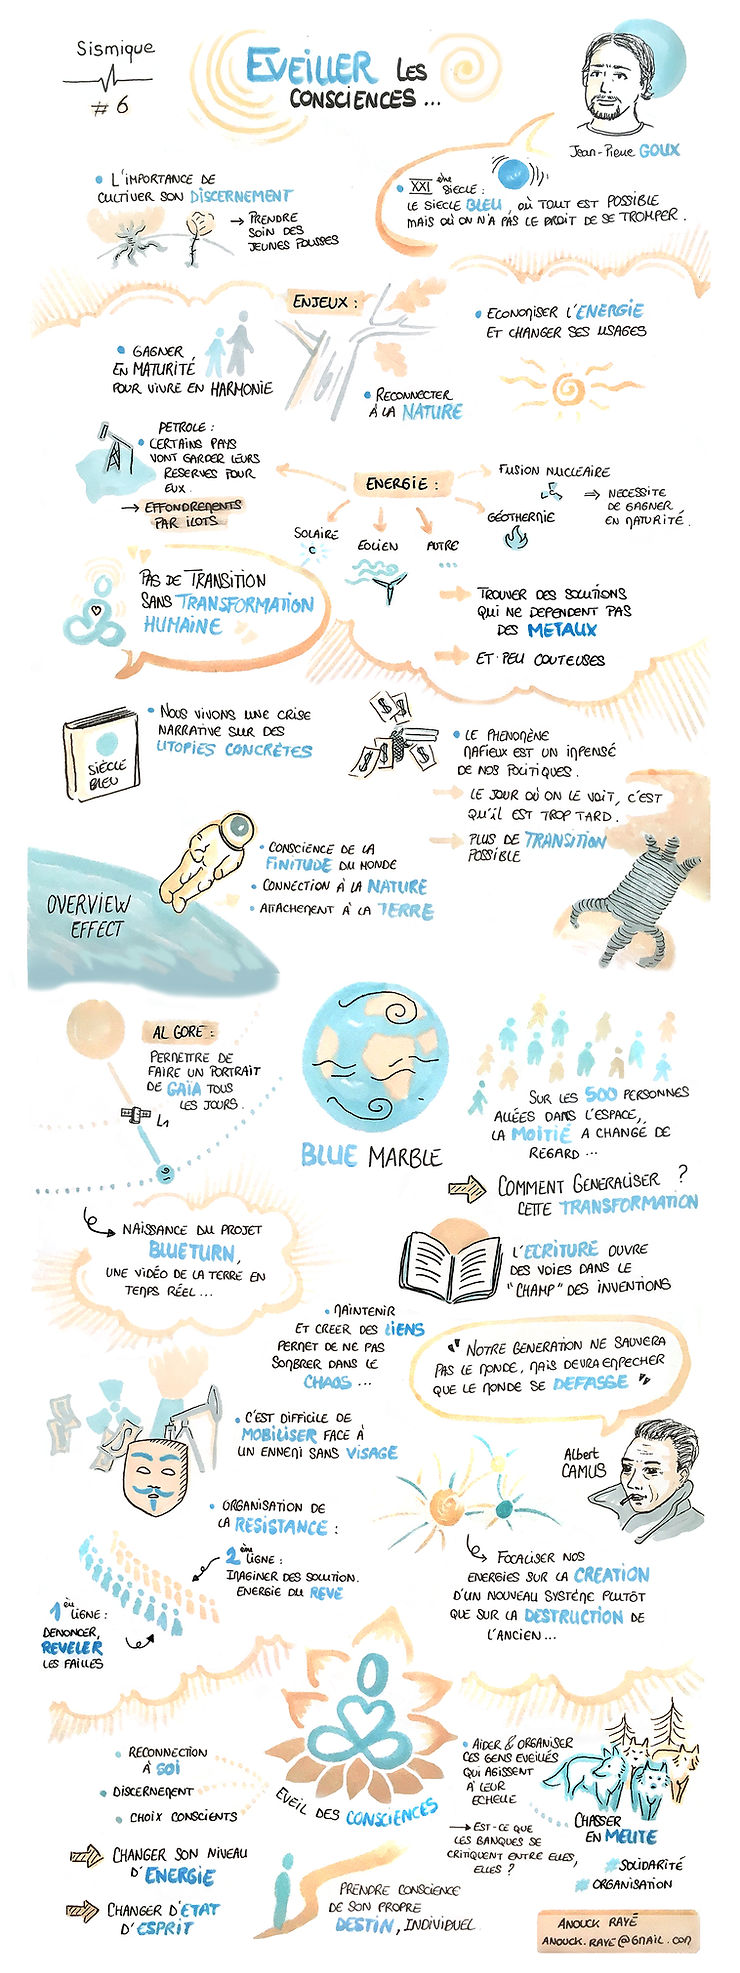 Sismique
# 6
EVEILLER LES
CONSCIENCES...
Jean-Pierre GOUX
• L'IMPORTANCE DE
CULTIVER SON DISCERNEMENT
→ PRENDRE
SOIN DES
JEUNES POUSSES
• XXI ème SIECLE :
LE SIECLE BLEU, OÙ TOUT EST POSSIBLE
MAIS OÙ ON N'A PAS LE DROIT DE SE TROMPER.
ENJEUX :
• GAGNER
EN MATURITÉ
POUR VIVRE EN HARMONIE
• RECONNECTER
À LA NATURE
• ECONOMISER L'ENERGIE
ET CHANGER SES USAGES
PETROLE :
• CERTAINS PAYS
VONT GARDER LEURS
RESERVES POUR
EUX.
→ EFFONDREMENTS
PAR ILOTS
ENERGIE :
SOLAIRE
EOLIEN
AUTRE
FUSION NUCLEAIRE
GÉOTHERMIE
⇒ NECESSITE
DE GAGNER
EN MATURITÉ.
PAS DE TRANSITION
SANS TRANSFORMATION
HUMAINE
TROUVER DES SOLUTIONS
QUI NE DEPENDENT PAS
DES METAUX
ET PEU COUTEUSES
SIÈCLE
BLEU
• NOUS VIVONS UNE CRISE
NARRATIVE SUR DES
UTOPIES CONCRÈTES
$ $ $ $ $
• LE PHENOMÈNE
MAFIEUX EST UN IMPENSÉ
DE NOS POLITIQUES.
LE JOUR OÙ ON LE VOIT, C'EST
QU'IL EST TROP TARD.
PLUS DE TRANSITION
POSSIBLE
OVERVIEW
EFFECT
• CONSCIENCE DE LA
FINITUDE DU MONDE
• CONNECTION À LA NATURE
• ATTACHEMENT À LA TERRE
AL GORE :
PERMETTRE DE
FAIRE UN PORTRAIT
DE GAÏA TOUS
LES JOURS.
L1
BLUE MARBLE
SUR LES 500 PERSONNES
ALLÉES DANS L'ESPACE,
LA MOITIÉ A CHANGÉ DE
REGARD ...
COMMENT GENERALISER ?
CETTE TRANSFORMATION
NAISSANCE DU PROJET
BLUETURN,
UNE VIDÉO DE LA TERRE EN
TEMPS RÉEL...
L'ECRITURE OUVRE
DES VOIES DANS LE
"CHAMP" DES INVENTIONS
• MAINTENIR
ET CREER DES LIENS
PERMET DE NE PAS
SOMBRER DANS LE
CHAOS ...
" NOTRE GENERATION NE SAUVERA
PAS LE MONDE, MAIS DEVRA EMPECHER
QUE LE MONDE SE DEFASSE "
Albert
CAMUS
• C'EST DIFFICILE DE
MOBILISER FACE À
UN ENNEMI SANS VISAGE
• ORGANISATION DE
LA RESISTANCE :
2ème LIGNE :
IMAGINER DES SOLUTION.
ENERGIE DU REVE
1ère LIGNE :
DENONCER,
REVELER
LES FAILLES
FOCALISER NOS
ENERGIES SUR LA CREATION
D'UN NOUVEAU SYSTÈME PLUTÔT
QUE SUR LA DESTRUCTION DE
L'ANCIEN...
• RECONNECTION
À SOI
• DISCERNEMENT
• CHOIX CONSCIENTS
EVEIL DES CONSCIENCES
CHANGER SON NIVEAU
D'ENERGIE
CHANGER D'ETAT
D'ESPRIT
PRENDRE CONSCIENCE
DE SON PROPRE
DESTIN, INDIVIDUEL.
• AIDER & ORGANISER
CES GENS EVEILLÉS
QUI AGISSENT
À LEUR
ECHELLE
→ EST-CE QUE
LES BANQUES SE
CRITIQUENT ENTRE ELLES,
ELLES ?
CHASSER
EN MEUTE
#SOLIDARITÉ
#ORGANISATION
ANOUCK RAYÉ
ANOUCK.RAYE@GMAIL.COM